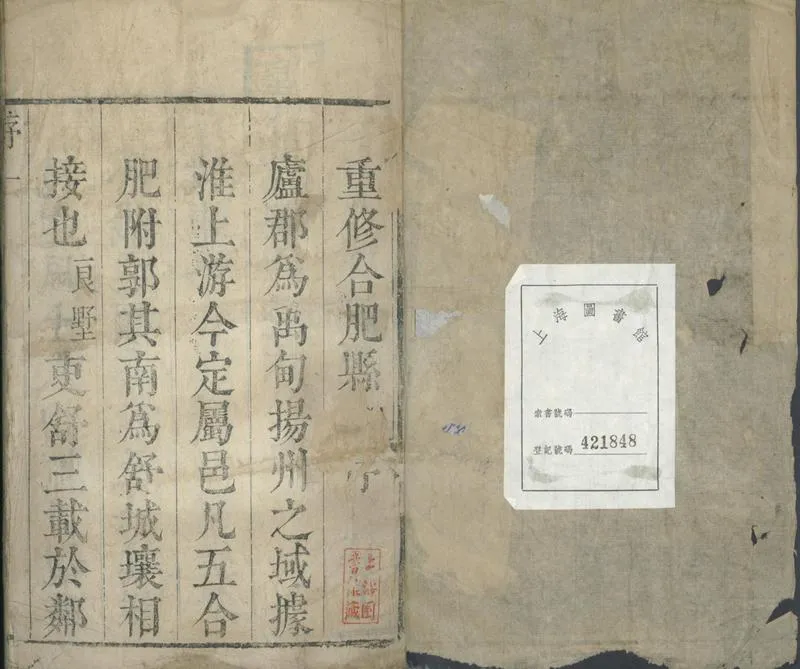 重修合肥縣 序
廬郡為禹甸揚州之域據
淮上游今定屬邑凡五合
肥附郭其南為舒城壤相
接也良墅 吏舒三載於鄰
序一
上海圖書館藏
上海圖書館
索書號碼
登記號碼 421848